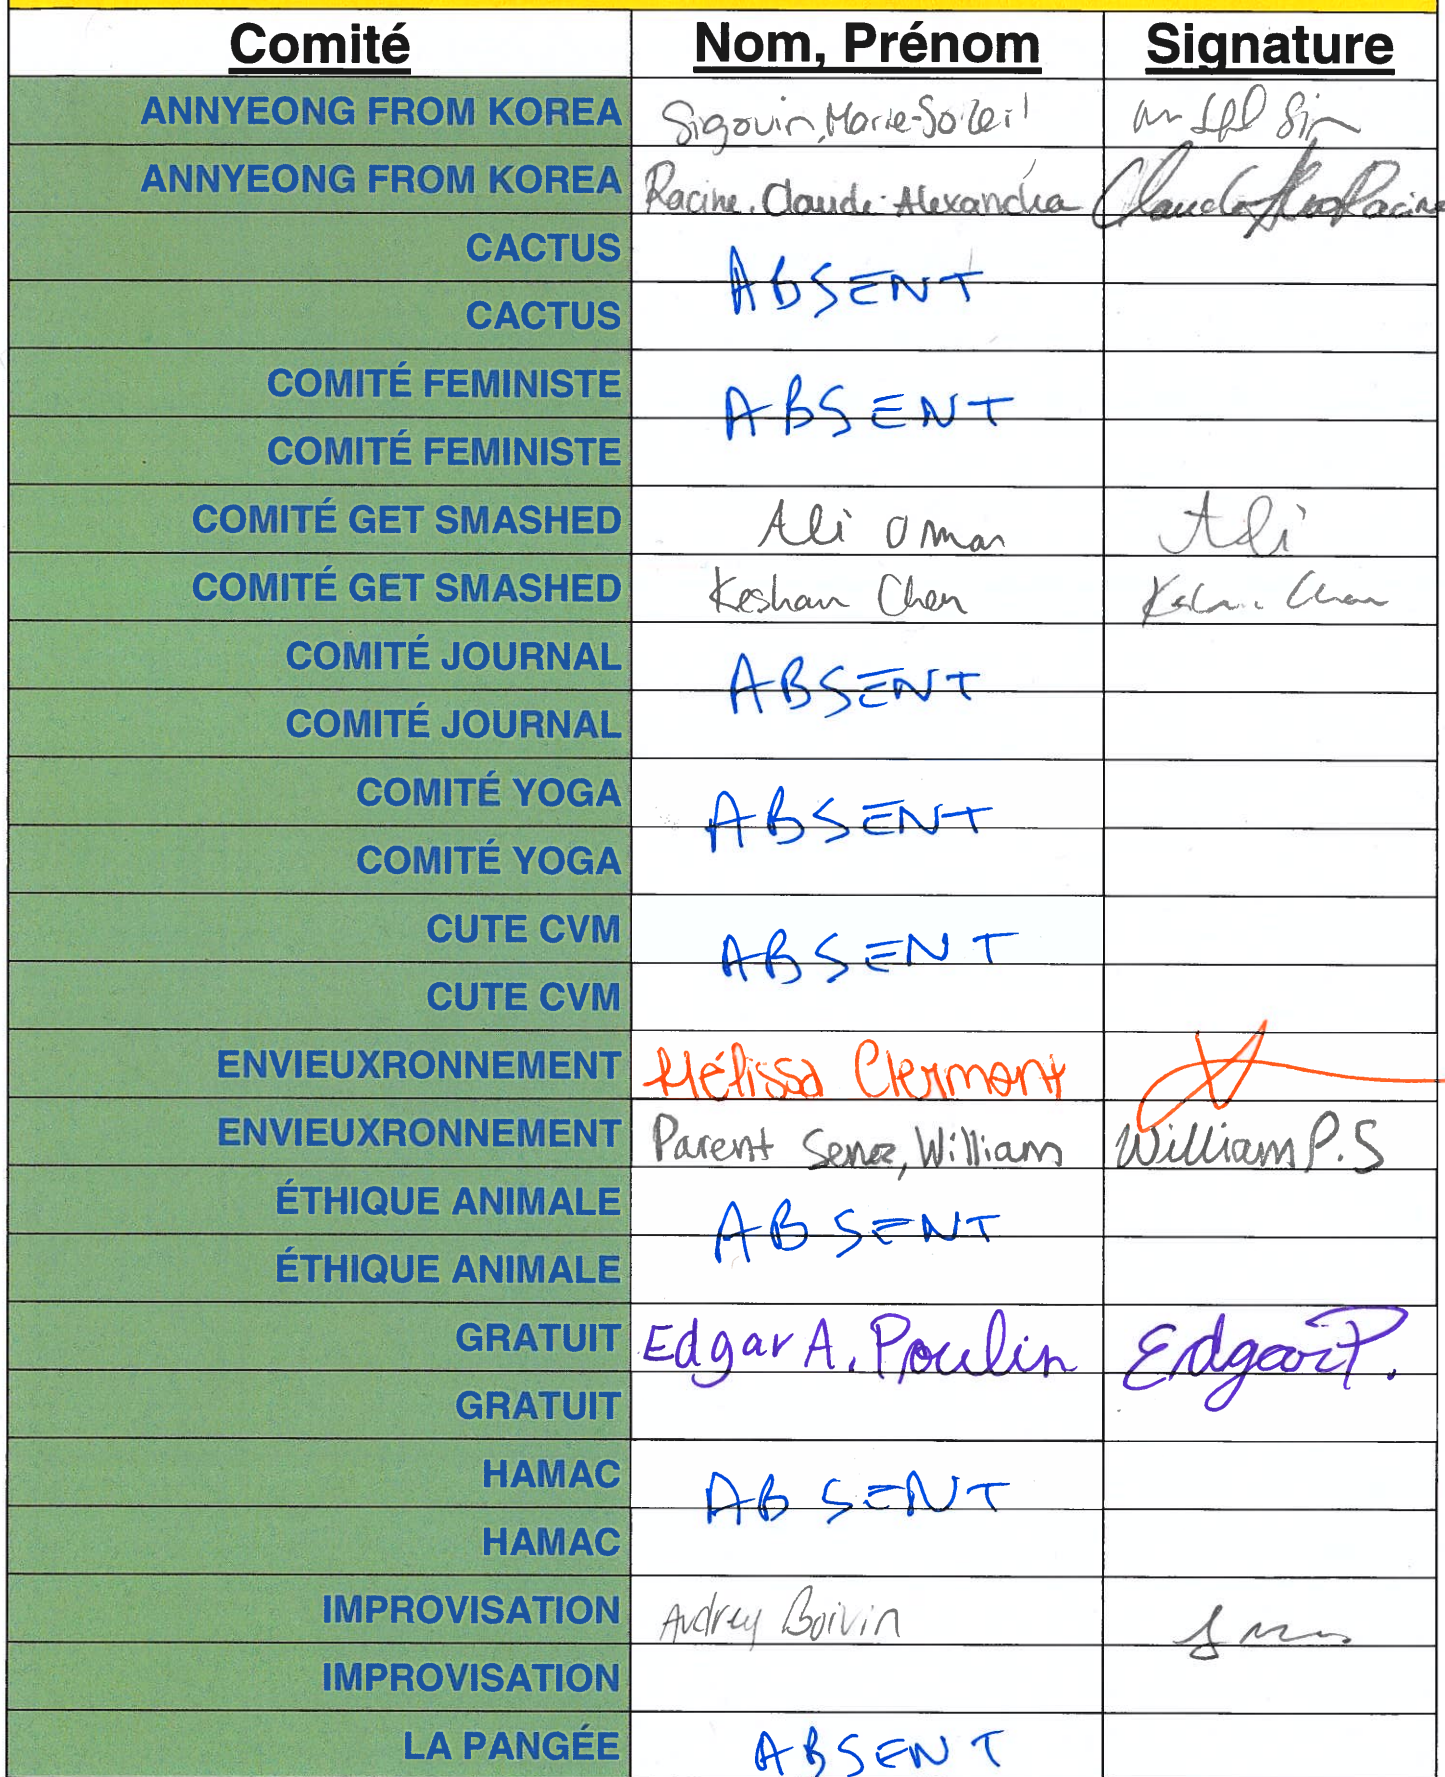 Comité Nom, Prénom Signature
ANNYEONG FROM KOREA Sigouin, Marie-Soleil
ANNYEONG FROM KOREA Racine, Claude-Alexandra Claude Alex Racine
CACTUS ABSENT
CACTUS
COMITÉ FEMINISTE ABSENT
COMITÉ FEMINISTE
COMITÉ GET SMASHED Ali Omar Ali
COMITÉ GET SMASHED Keshan Chen Keshan Chen
COMITÉ JOURNAL ABSENT
COMITÉ JOURNAL
COMITÉ YOGA ABSENT
COMITÉ YOGA
CUTE CVM ABSENT
CUTE CVM
ENVIEUXRONNEMENT Mélissa Clermont
ENVIEUXRONNEMENT Parent Senez, William William P.S
ÉTHIQUE ANIMALE ABSENT
ÉTHIQUE ANIMALE
GRATUIT Edgar A. Poulin Edgar P.
GRATUIT
HAMAC ABSENT
HAMAC
IMPROVISATION Audrey Boivin
IMPROVISATION
LA PANGÉE ABSENT